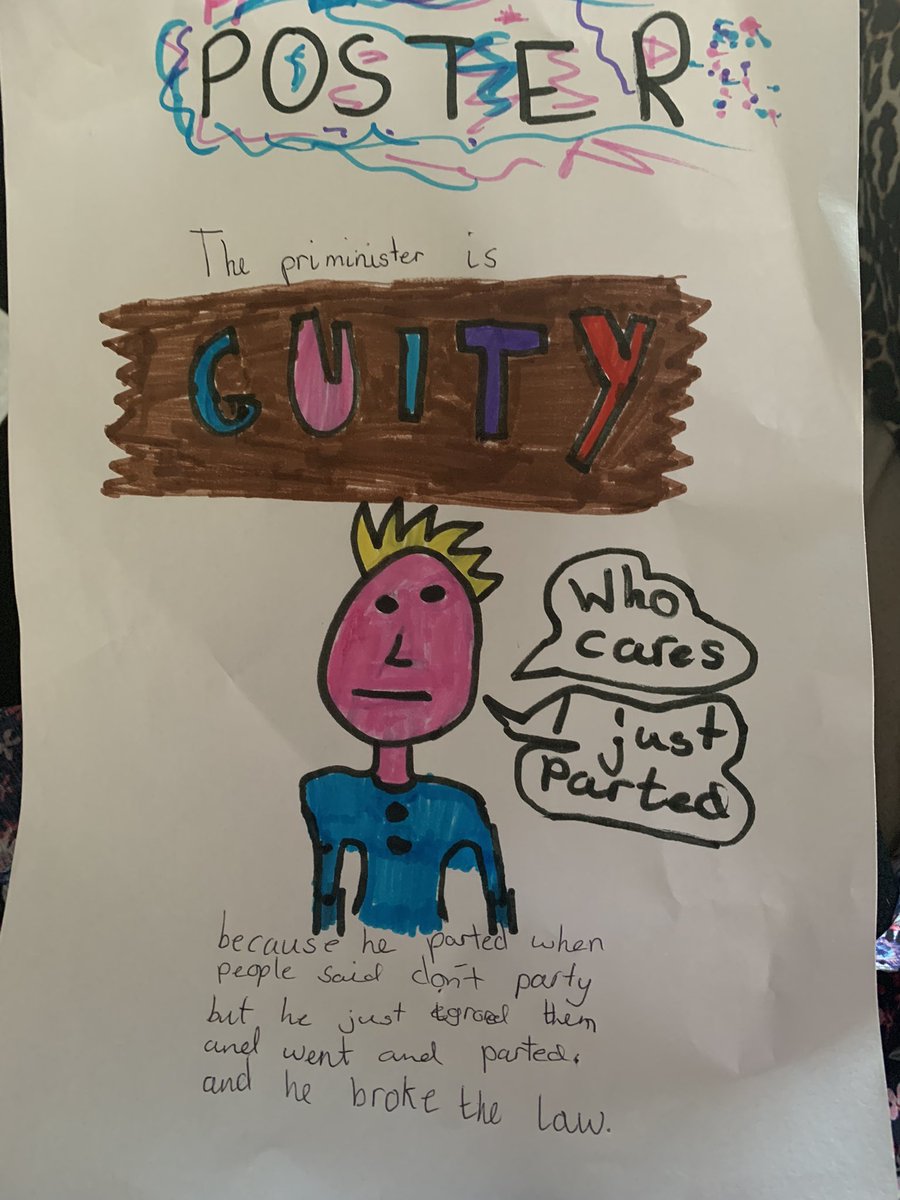 POSTER
The priminister is
GUITY
Who
cares
I just
Parted
because he parted when
people said don't party
but he just them
and went and parted.
and he broke the law.